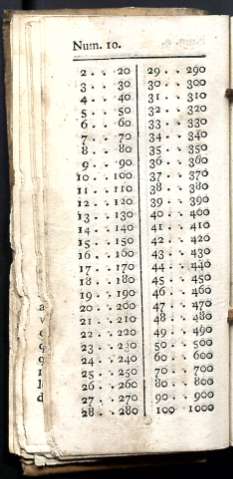 Num. 10.
2 . . 20 29 . . 290
3 . . 30 30 . . 300
4 . . 40 31 . . 310
5 . . 50 32 . . 320
6 . . 60 33 . . 330
7 . . 70 34 . . 340
8 . . 80 35 . . 350
9 . . 90 36 . . 360
10 . . 100 37 . . 370
11 . . 110 38 . . 380
12 . . 120 39 . . 390
13 . . 130 40 . . 400
14 . . 140 41 . . 410
15 . . 150 42 . . 420
16 . . 160 43 . . 430
17 . . 170 44 . . 440
18 . . 180 45 . . 450
19 . . 190 46 . . 460
20 . . 200 47 . . 470
21 . . 210 48 . . 480
22 . . 220 49 . . 490
23 . . 230 50 . . 500
24 . . 240 60 . . 600
25 . . 250 70 . . 700
26 . . 260 80 . . 800
27 . . 270 90 . . 900
28 . . 280 100 1000